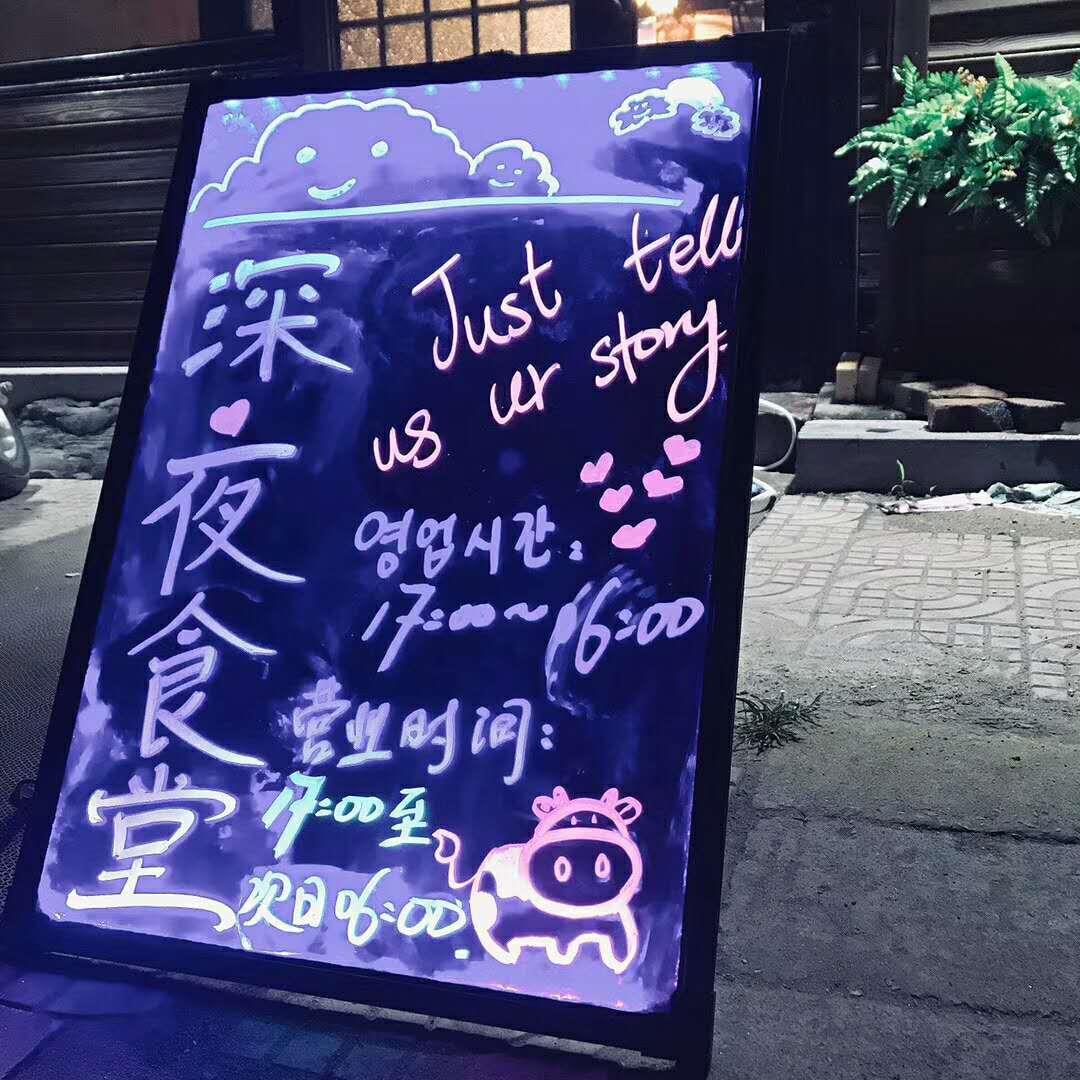 深夜食堂
Just tell
us ur story.
영업시간:
17:00~06:00
营业时间:
17:00至
次日06:00.